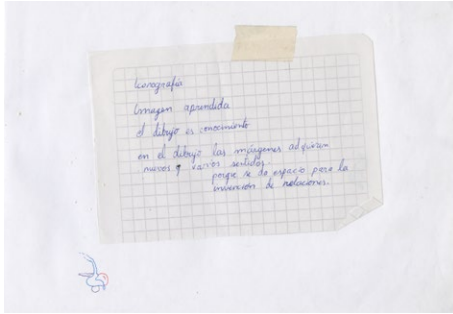 Iconografia
Imagen aprendida
el dibujo es conocimiento
en el dibujo las imágenes adquieren
nuevos y varios sentidos.
porque se da espacio para la
invención de relaciones.